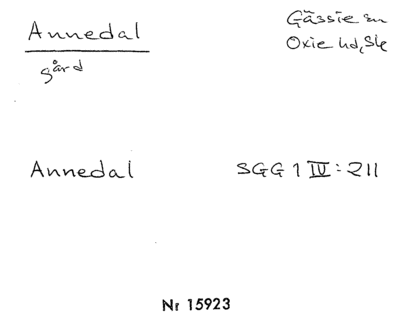 Annedal
gård
Gässie sn
Oxie hd, Sk
Annedal SGG 1 IV: 211
Nr 15923